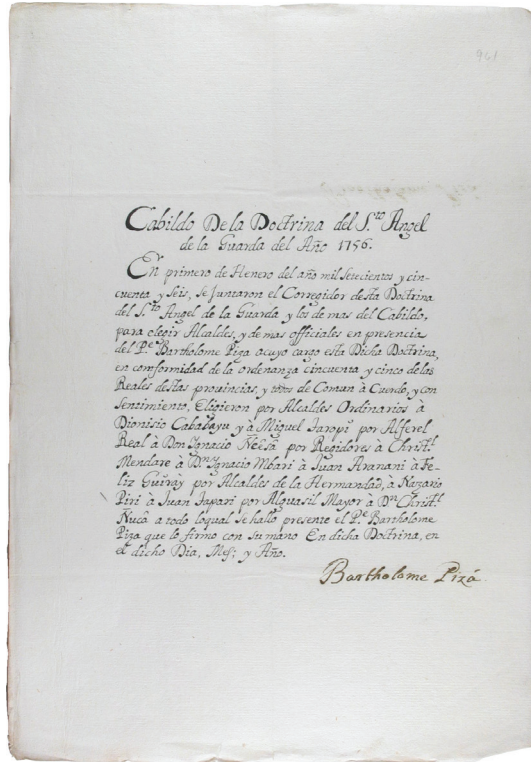 961
Cabildo De la Doctrina del S.to Angel
de la Guarda del Año 1756.
En primero de Henero del año mil setecientos y cin-
cuenta y seis, se juntaron el Corregidor desta Doctrina
del S.to Angel de la Guarda y los de mas del Cabildo,
para elegir Alcaldes, y de mas officiales en presencia
del P.e Bartholome Piza acuyo cargo esta Dicha Doctrina,
en conformidad de la ordenanza cincuenta y cinco de las
Reales destas provincias, y todos de Comun à Cuerdo, y con
sentimiento, Eligieron por Alcaldes Ordinarios à
Dionisio Cababayu y à Miguel Taropi por Alferel
Real à Don Ignacio Neesa por Regidores à Christ.l
Mendare à D.n Ignacio Mbari à Juan Aranani à Fe-
liz Guiray por Alcaldes de la Hermandad, à Nazario
Piri à Juan Japari por Alguasil Mayor à D.n Christ.l
Nuca a todo loqual se hallo presente el P.e Bartholome
Piza que lo firmo con su mano En dicha Doctrina, en
el dicho Dia, Mes; y Año.
Bartholome Pizá